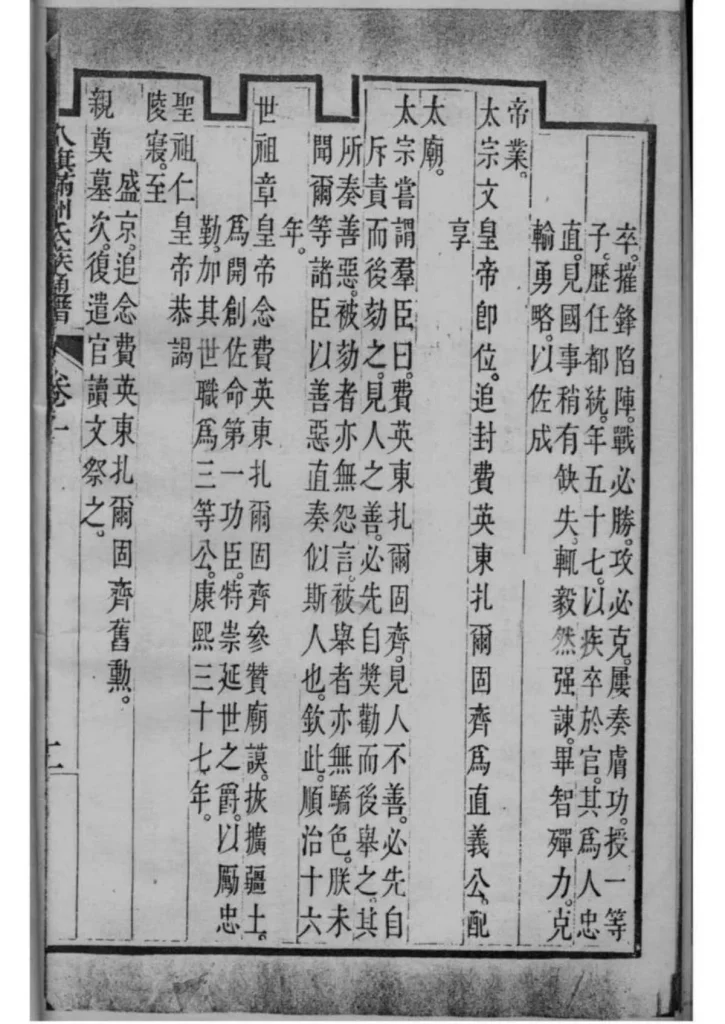 卒。摧鋒陷陣。戰必勝。攻必克。屢奏膚功。授一等
子。歷任都統。年五十七。以疾卒於官。其為人忠
直。見國事稍有缺失。輒毅然强諫。畢智殫力。克
輸勇略。以佐成
帝業。
太宗文皇帝卽位。追封費英東扎爾固齊為直義公。配
享
太廟。
太宗嘗謂羣臣曰。費英東扎爾固齊。見人不善。必先自
斥責而後劾之。見人之善。必先自獎勸而後舉之。其
所奏善惡。被劾者亦無怨言。被舉者亦無驕色。朕未
聞爾等諸臣以善惡直奏似斯人也。欽此。順治十六
年。
世祖章皇帝念費英東扎爾固齊參贊廟謨。恢擴疆土。
為開創佐命第一功臣。特崇延世之爵。以勵忠
勤。加其世職為三等公。康熙三十七年。
聖祖仁皇帝恭謁
陵寢。至
盛京。追念費英東扎爾固齊舊勳。
親奠墓次。復遣官讀文祭之。
八旗滿洲氏族通譜 卷一 二